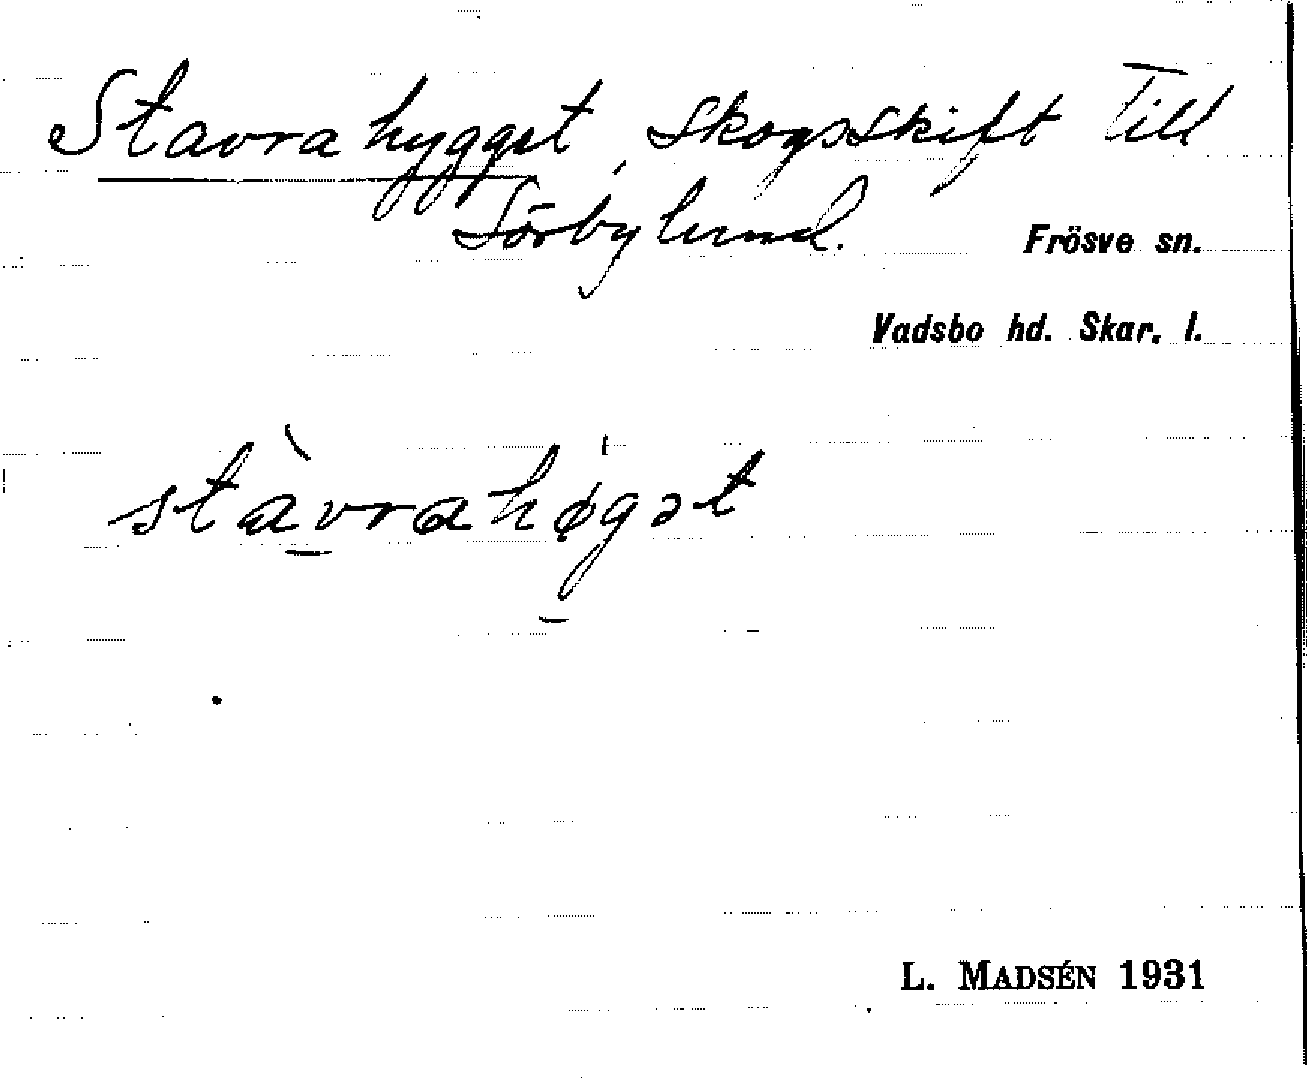 Stavrahygget, Skogsskift till
Sörbylund.
Frösve sn.
Vadsbo hd. Skar. l.
stàvrahøgət
L. MADSÉN 1931